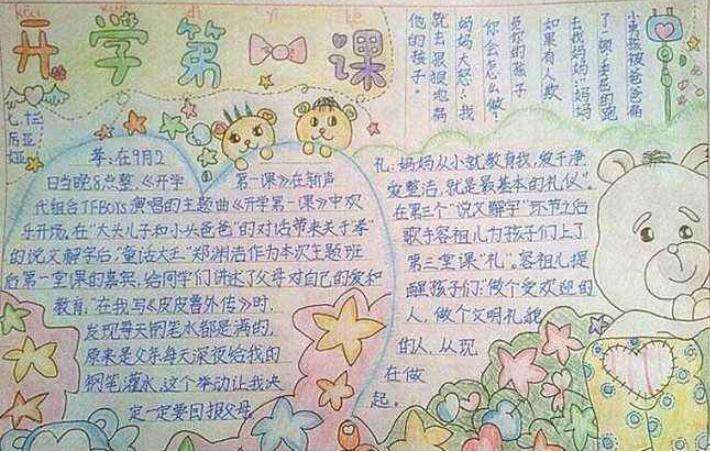 kāi xué dì yī kè
开学第 课
小男孩被爸爸
了一顿,委屈的跑
去找妈妈:"妈妈
如果有人欺
负你的孩子
你会怎么做"
妈妈大怒:"我
就去狠狠地揍
他的孩子。
孝:在9月2
日当晚8点整,《开学第一课》在新声
代组合TFBOYS演唱的主题曲《开学第一课》中欢
乐开场,在"大头儿子和小头爸爸"的对话带来关于孝"
的说文解字后,"童话大王"郑渊洁作为本次主题班
后第一堂课的嘉宾,给同学们讲述了父母对自己的爱和
教育,"在我写《皮皮鲁外传》时,
发现每天钢笔水都是满的,
原来是父亲每天深夜给我的
钢笔灌水,这个举动让我决
定一定要回报父母。
礼:妈妈从小就教育我,爱干净
爱整洁,就是最基本的礼仪"。
在第三个"说文解字"环节之后
歌手容祖儿为孩子们上了
第三堂课"礼"。容祖儿提
醒孩子们:"做个受欢迎的
人,做个文明礼貌
的人,从现
在做
起。